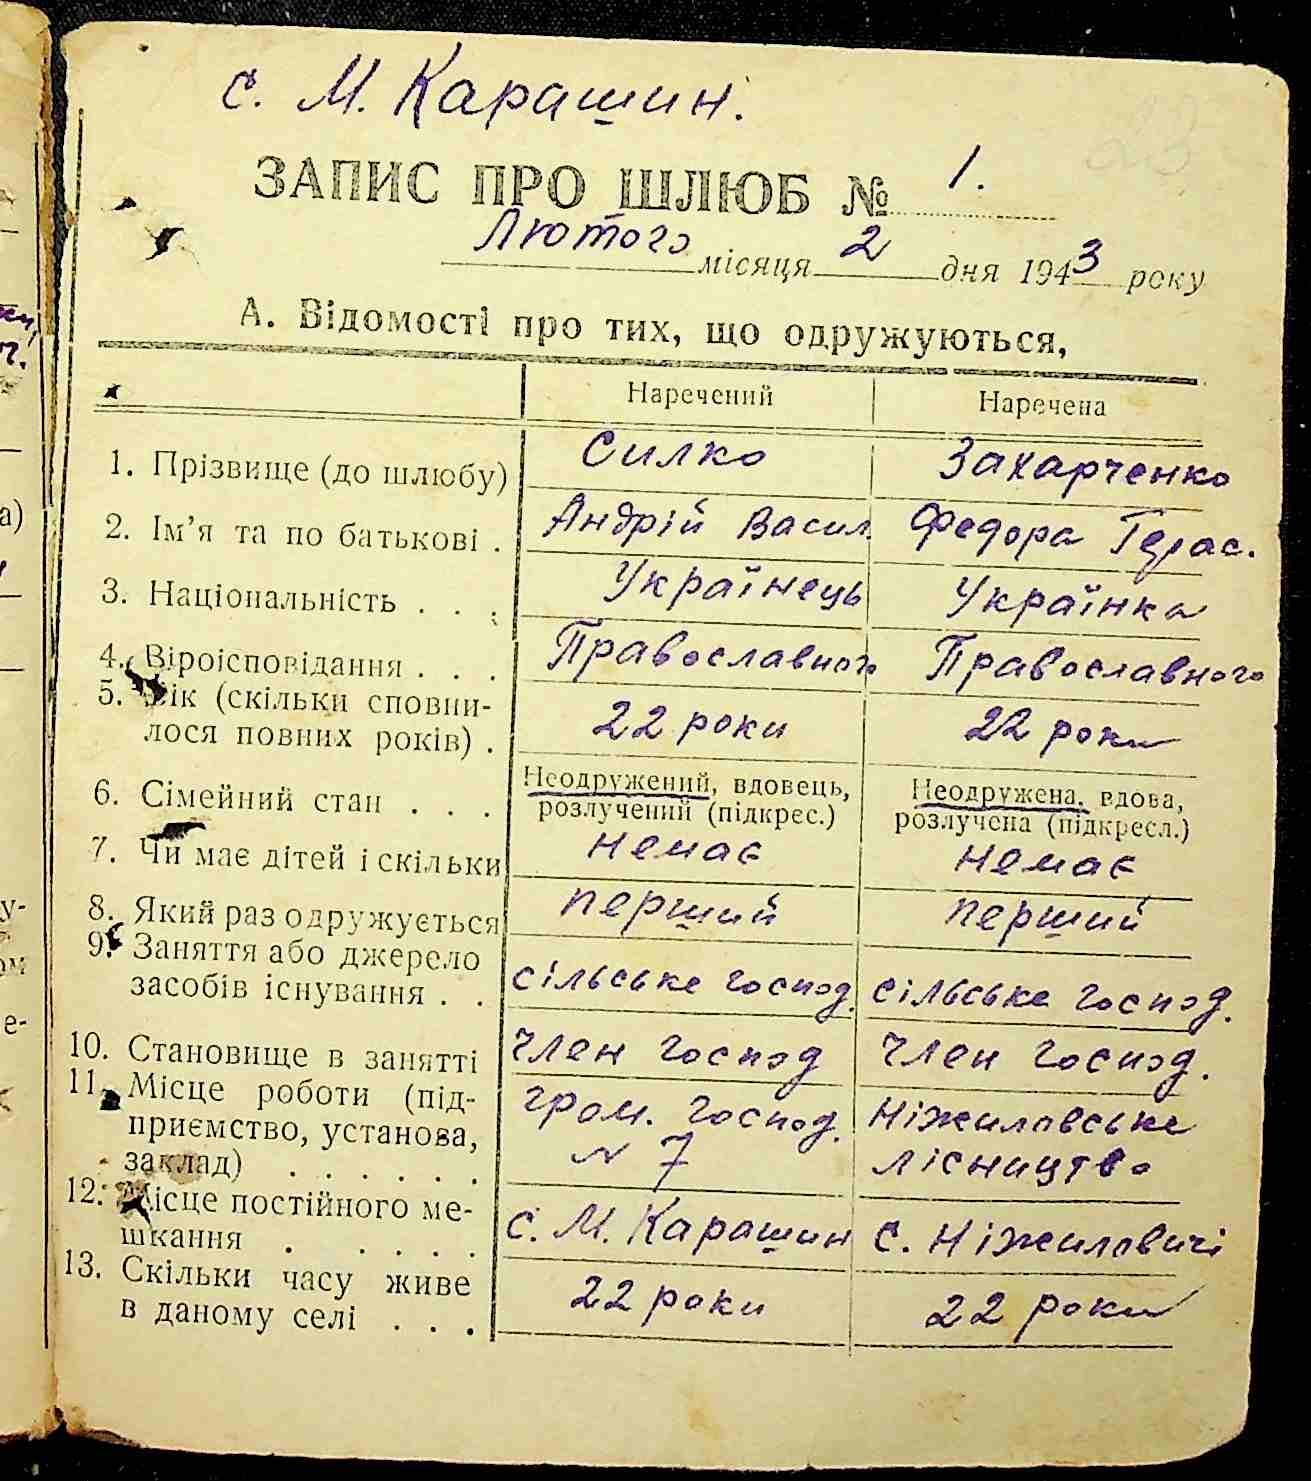 с. М. Карашин.
23
ЗАПИС ПРО ШЛЮБ № 1.
Лютого місяця 2 дня 1943 року
А. Відомості про тих, що одружуються,
Наречений Наречена
1. Прізвище (до шлюбу) Силко Захарченко
2. Ім'я та по батькові . Андрій Васил. Федора Герас.
3. Національність . . . Українець Українка
4. Віроісповідання . . . Православного Православного
5. Вік (скільки сповни-
лося повних років) . 22 роки 22 роки
6. Сімейний стан . . . Неодружений, вдовець, Неодружена, вдова,
розлучений (підкрес.) розлучена (підкресл.)
7. Чи має дітей і скільки немає немає
8. Який раз одружується перший перший
9. Заняття або джерело
засобів існування . . сільське господ. сільське господ.
10. Становище в занятті член господ член господ.
11. Місце роботи (під- гром. господ. Ніжиловське
приємство, установа, № 7 лісництво
заклад) . . . . . .
12. Місце постійного ме-
шкання . . . . . с. М. Карашин с. Ніжиловичі
13. Скільки часу живе
в даному селі . . . 22 роки 22 роки